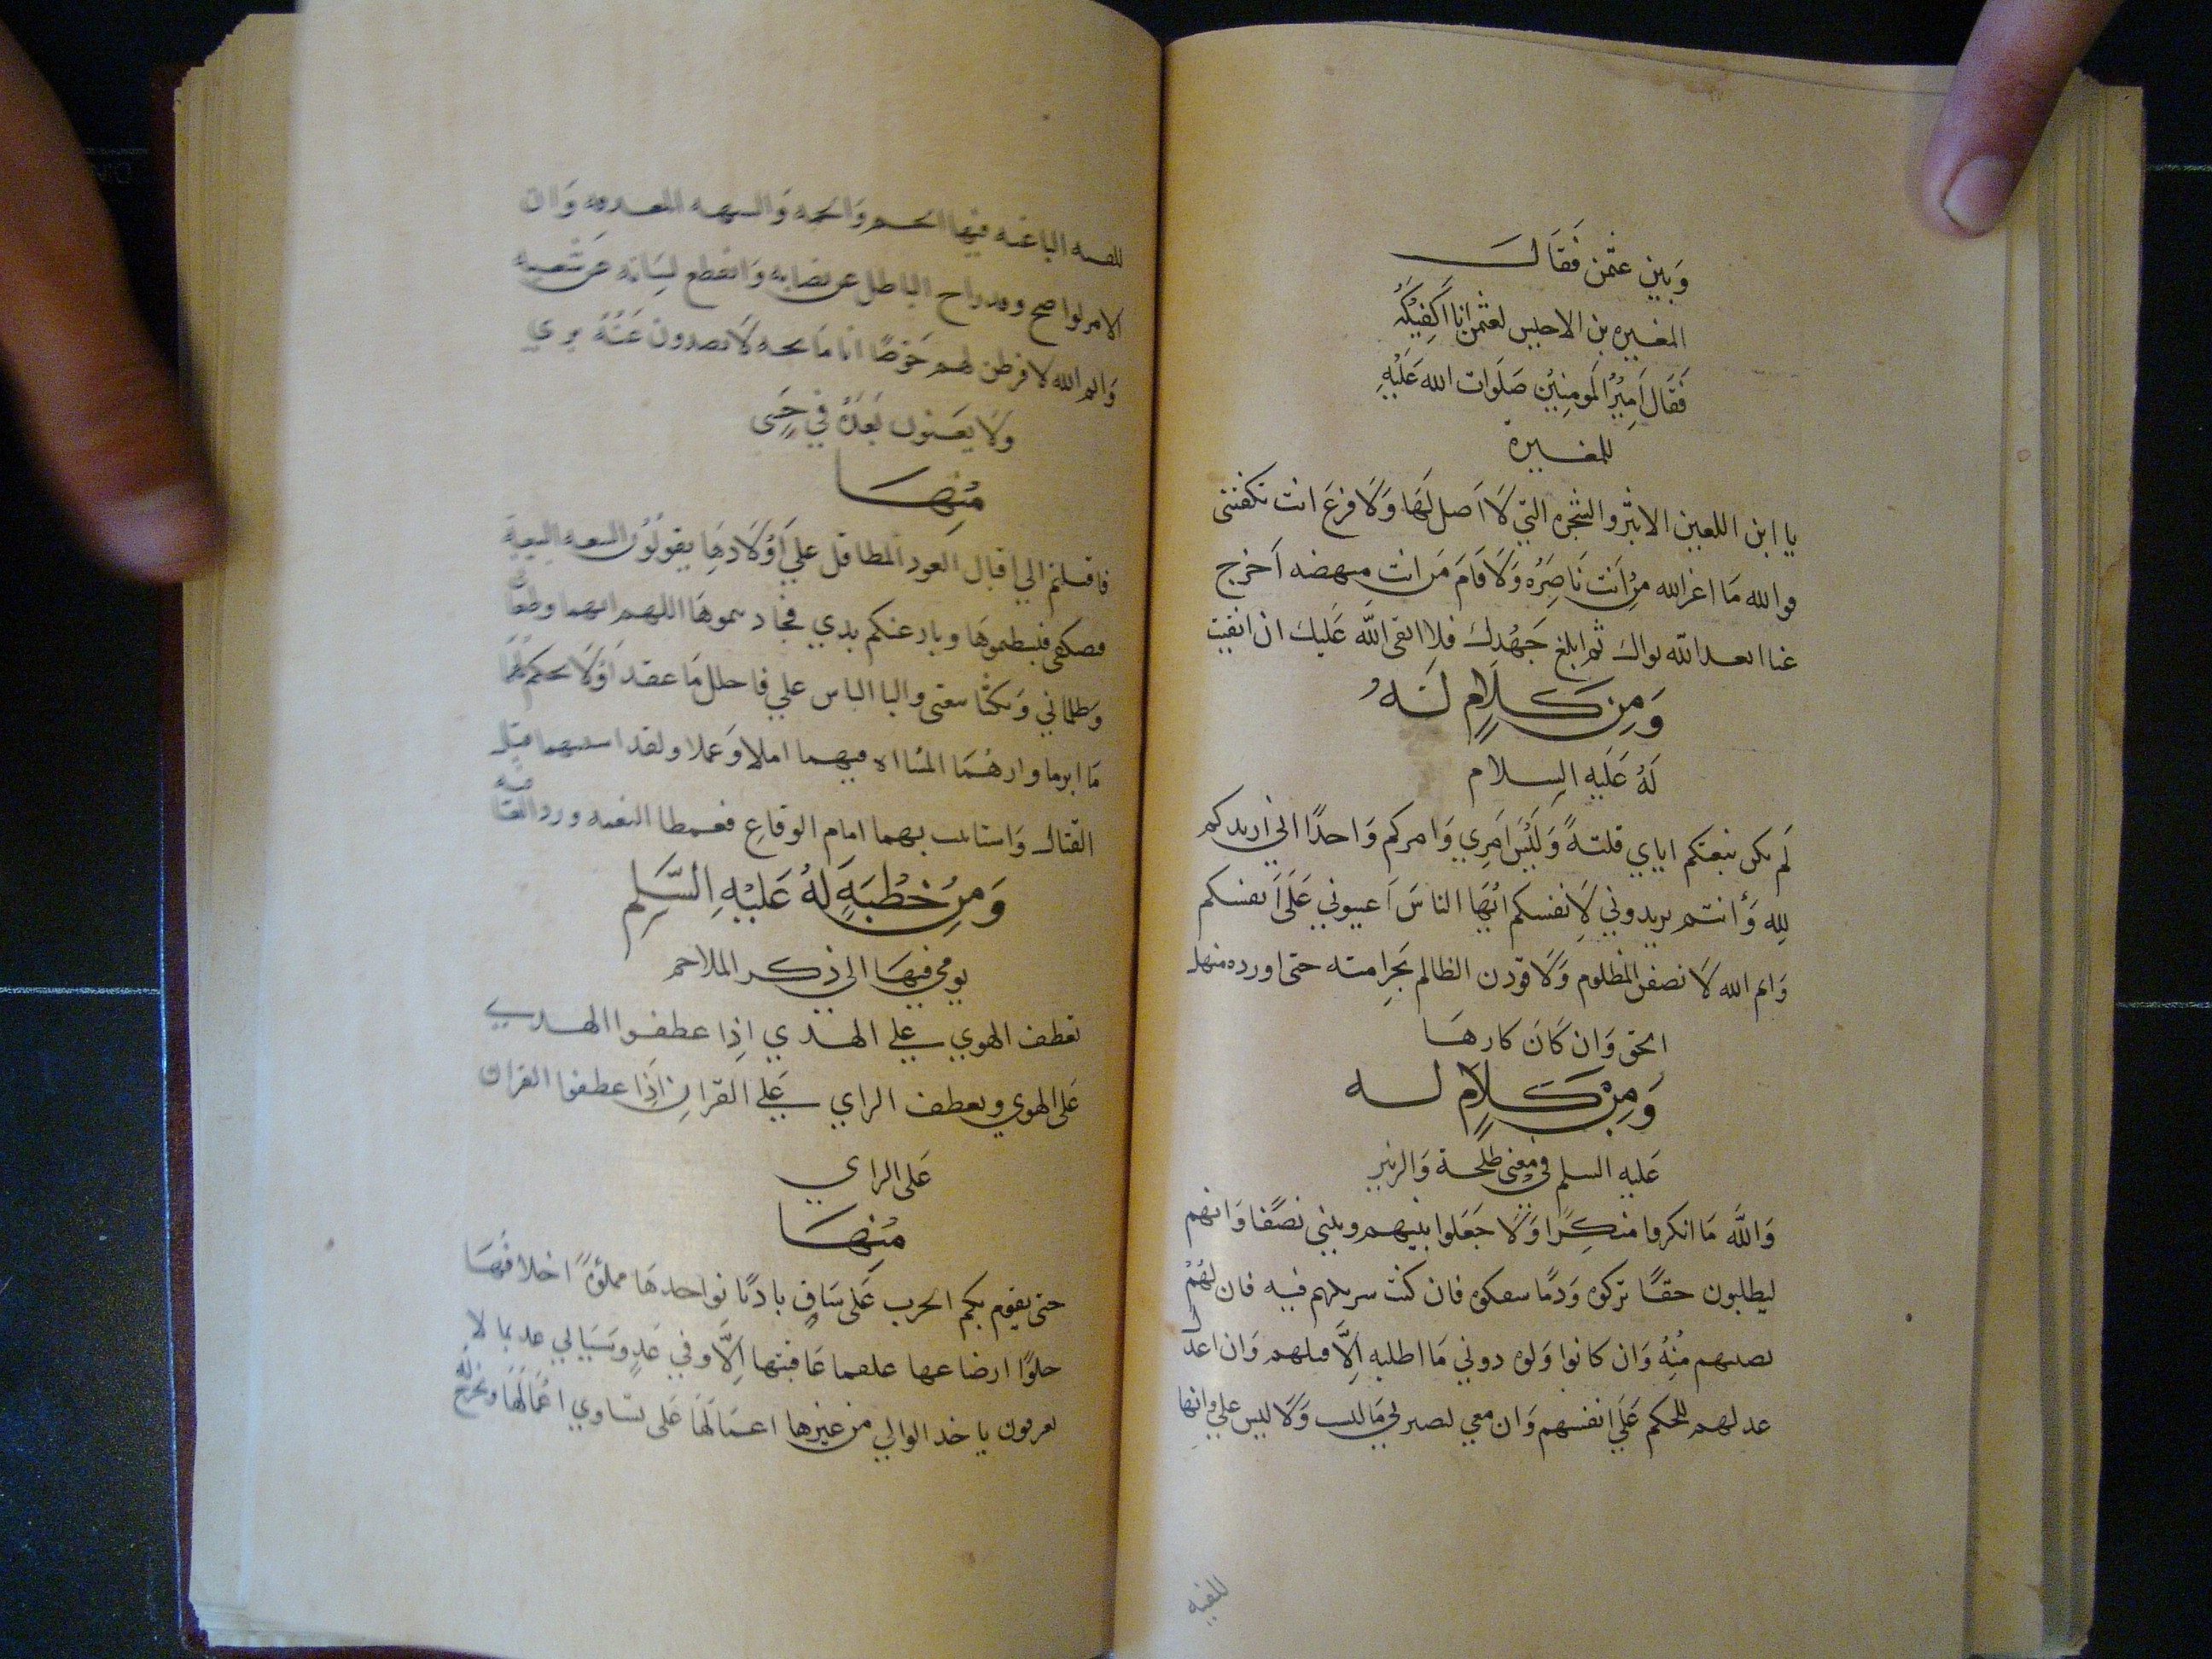 وَبين عثمن فَقَالــــ
المغيره بن الاحلس لعثمن انا اَكفِيكَهُ
فَقَال اَمِيرُ المومِنِين صَلَوات الله عَلَيْهِ
للمغــيرة
يا ابن اللعين الابتر والشجره التي لَا اَصل لَهَا وَلَا فرعَ انت تكفنى
فوالله مَا اعز الله مِنْ اَنت نَاصِرُه وَلَا قَامَ مَن انت منهضه اَخرج
عنا ابعد الله نواك ثم ابلغ جَهْدك فلا ابقى الله عَليكَ ان ابقيت
وَمِن كَــلَامٍ لَـهُ
لَهُ عَلَيهِ السلام
لَم تكن بيعتكم اياي فلتهً وَلَيْسَ اَمِري وَامركم وَاحدًا اني اريدكم
لِله وَأنتم تريدوني لِاَنفسكم ايُّهَا الناسَ اَعينوني عَلَى اَنفسكم
وَايم الله لَانصفن المظلوم وَلَاقودن الظالم بخِزامته حتى اورده منهل
الحق وَان كَانَ كارهَــا
وَمِن كَــلَامٍ لــه
عَليه السلم في معنى طلحــة وَالزبير
وَاللَّه مَا انكروا منكِــرًا وَلَا جَعَلوا بينهم وبيني نصفًا وَانهم
ليطلبون حقًــا تركوه وَدمًا سفكوه فان كنت شريكهم فيه فان لهُمْ
نصيبهم مِنْهُ وَان كانوا وَلوه دوني مَا الطلبه اِلَّا قبلهم وَان اول
عدلهم للحكم عَلَى انفسهم وَان معي لبصيرتي مَا لبست وَلَا لبس علي وانها
للفيه
للفيه الباغيه فيها الحمــا وَالحمه وَالشبهه المغدفه وَان
الامر لواضح وقد زاح الباطل عن نصابه وَانقطع لِسَانه عَن شغبه
وَايم الله لافرطن لهم حَوضًا انا ماتحه لَا يصدرون عَنْهُ بري
وَلَا يعبّون بَعْدهُ في حَسي
مِنهَــا
فاقبلتم الي اقبال العوذ المطافل علي اَوْلَادهَا يقولُون البيعه البيعة
وظلماني وَنكثا بيعتي والبا الناس علي فاحلل مَا عقدَا وَلَا تحكم لَهُمَا
مَا ابرما وارهُمَا المسَااه فيهما املا وَعملا ولقد استثبتهما قبل
القتال وَاستانيت بهما امام الوقاعِ فغمطا النعمه وردا العَا
فيه
وَمِنْ خُطْبَةٍ لَهُ عَلَيْهِ السَّلِم
يومي فيهَا الي ذكــر الملاحم
تعطف الهوي علي الهــدي اِذا عطفــوا الهــدي
عَلى الهوي وتعطف الراي عَلي القرانِ اِذَا عطفوا القران
عَلى الراي
مِنهَــا
حتى يقوم بكم الحرب عَلى سَاقٍ باديًا نواجدهَا مملوْةً اخلافُهَا
حلوًا ارضاعها علقما عَاقبتها اِلَّا وفي غَدٍ وَسَيَاتي غد بما لا
تعرفون ياخذ الوالي من غيرها اعــمَالَهَا عَلى مسَاوي اعمَالَهَا وتخرج
له